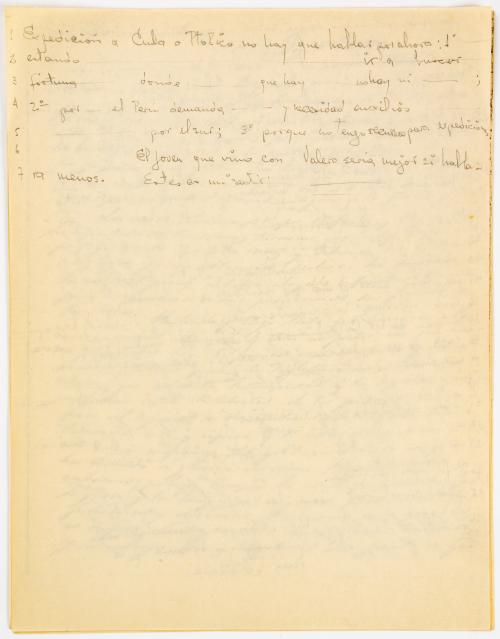 1 Expedición a Cuba o Pto Rico no hay que hablar por ahora; 1º
2 estando ir a buscar
3 fortuna donde que hay no hay ni ——— ;
4 2º por — el Perú demanda — — y necesidad auxilios
5 por el sur; 3º porque no tengo recursos para expedición;
6 El joven que vino con Valero sería mejor si habla-
7 ra menos. Este es mi sentir.